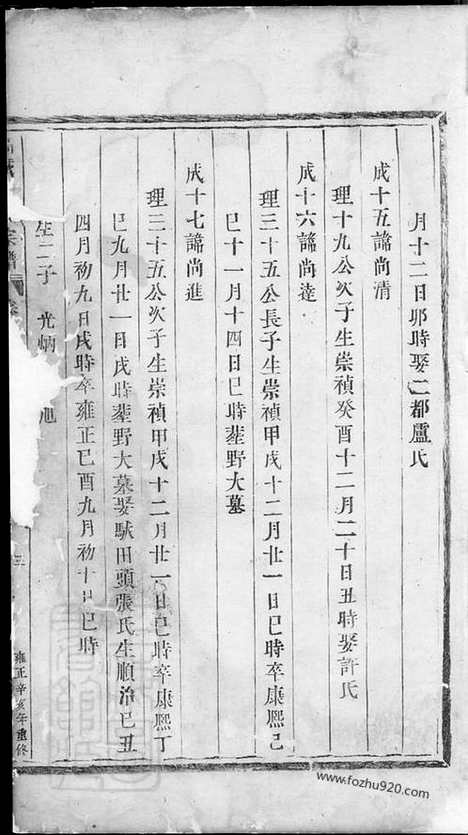 月十二日卯時娶二都盧氏
成十五諱尚清
理十九公次子生崇禎癸酉十二月二十日丑時娶許氏
成十六諱尚達
理三十五公長子生崇禎甲戌十二月廿一日巳時卒康熙己
巳十一月十四日巳時葬野大墓
成十七諱尚進
理三十五公次子生崇禎甲戌十二月廿一日巳時卒康熙丁
巳九月廿一日戌時葬野大墓娶𫘝田頭張氏生順治己丑
四月初九日戌時卒雍正己酉九月初十日巳時
生二子 光炳 旭
宗譜
三
雍正辛亥年重修
www.fozhu920.com